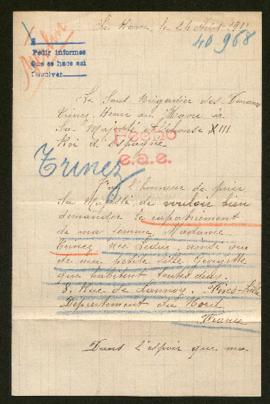 Le Havre, le 24 Août 191
40968
Pedir informes
Que se hace así
Devolver
Le Sous Brigadier des Douanes
Trinez Henri au Havre à
Sa Majesté Alphonse XIII
Roi d'Espagne
Trinez
e.a.e.
J'ai l'honneur de prier
Sa Majesté de vouloir bien
demander le rapatriement
de ma femme, Madame
Trinez née
de ma petite fille Georgette
qui habitent toutes deux
8, Rue de Lannoy,
Département du Nord
France
Dans l'espoir que ma